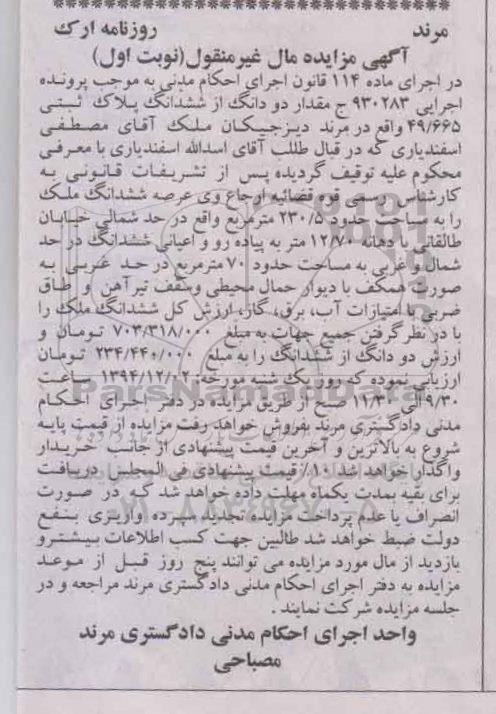 مرند روزنامه ارک
آگهی مزایده مال غیرمنقول(نوبت اول)
در اجرای ماده ۱۱۴ قانون اجرای احکام مدنی به موجب پرونده
اجرایی ۹۳۰۲۸۳ ج مقدار دو دانگ از ششدانگ پلاک ثبتی
۴۹/۶۶۵ واقع در مرند دیزجیکان ملک آقای مصطفی
اسفندیاری که در قبال طلب آقای اسدالله اسفندیاری با معرفی
محکوم علیه توقیف گردیده پس از تشریفات قانونی به
کارشناس رسمی قوه قضائیه ارجاع وی عرصه ششدانگ ملک
را به مساحت حدود ۲۳۰/۵ مترمربع واقع در حد شمالی خیابان
طالقانی با دهانه ۱۲/۷۰ متر به پیاده رو و اعیانی ششدانگ در حد
شمال و غربی به مساحت حدود ۷۰ مترمربع در حد غربی به
صورت همکف با دیوار حمال محیطی وسقف تیرآهن و طاق
ضربی با امتیازات آب، برق، گاز، ارزش کل ششدانگ ملک را
با در نظر گرفتن جمیع جهات به مبلغ ۷۰۳/۳۱۸/۰۰۰ تومان و
ارزش دو دانگ از ششدانگ را به مبلغ ۲۳۴/۴۴۰/۰۰۰ تومان
ارزیابی نموده که روز یک شنبه مورخه: ۱۳۹۴/۱۲/۰۲ ساعت
۹/۳۰ الی ۱۱/۳۰ صبح از طریق مزایده در دفتر اجرای احکام
مدنی دادگستری مرند بفروش خواهد رفت مزایده از قیمت پایه
شروع به بالاترین و آخرین قیمت پیشنهادی از جانب خریدار
واگذار خواهد شد ۱۰٪ قیمت پیشنهادی فی المجلس دریافت
برای بقیه بمدت یکماه مهلت داده خواهد شد که در صورت
انصراف یا عدم پرداخت مزایده تجدید سپرده واریزی بنفع
دولت ضبط خواهد شد طالبین جهت کسب اطلاعات بیشترو
بازدید از مال مورد مزایده می توانند پنج روز قبل از موعد
مزایده به دفتر اجرای احکام مدنی دادگستری مرند مراجعه و در
جلسه مزایده شرکت نمایند .
واحد اجرای احکام مدنی دادگستری مرند
مصباحی
ParsNamadData